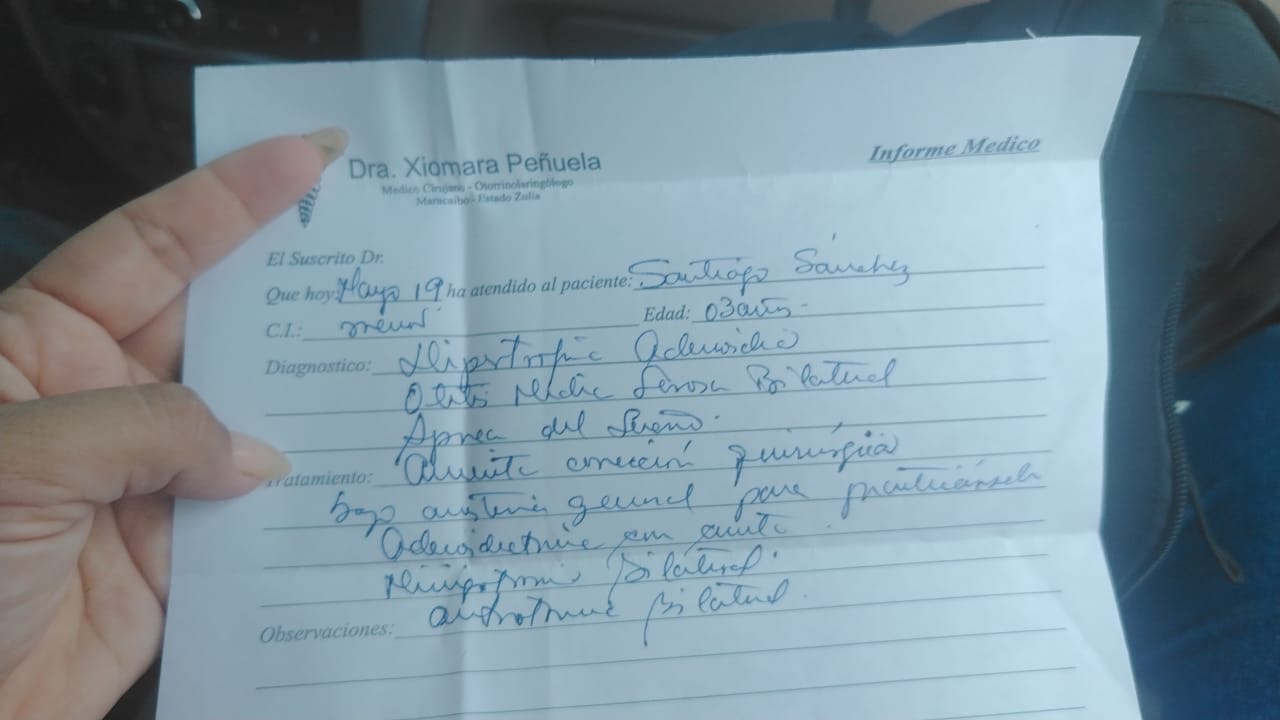 Dra. Xiomara Peñuela
Medico Cirujano - Otorrinolaringólogo
Maracaibo - Estado Zulia
Informe Medico
El Suscrito Dr.
Que hoy: Mayo 19 ha atendido al paciente: Santiago Sánchez
C.I.: menor Edad: 03 años -
Diagnostico: Hipertrofia Adenoidea
Otitis Media Serosa Bilateral
Apnea del Sueño.
Tratamiento: Amerita corrección quirúrgica
bajo anestesia general para practicársele
Adenoidectomia
Miringotomia Bilateral.
antrotomia Bilateral.
Observaciones: